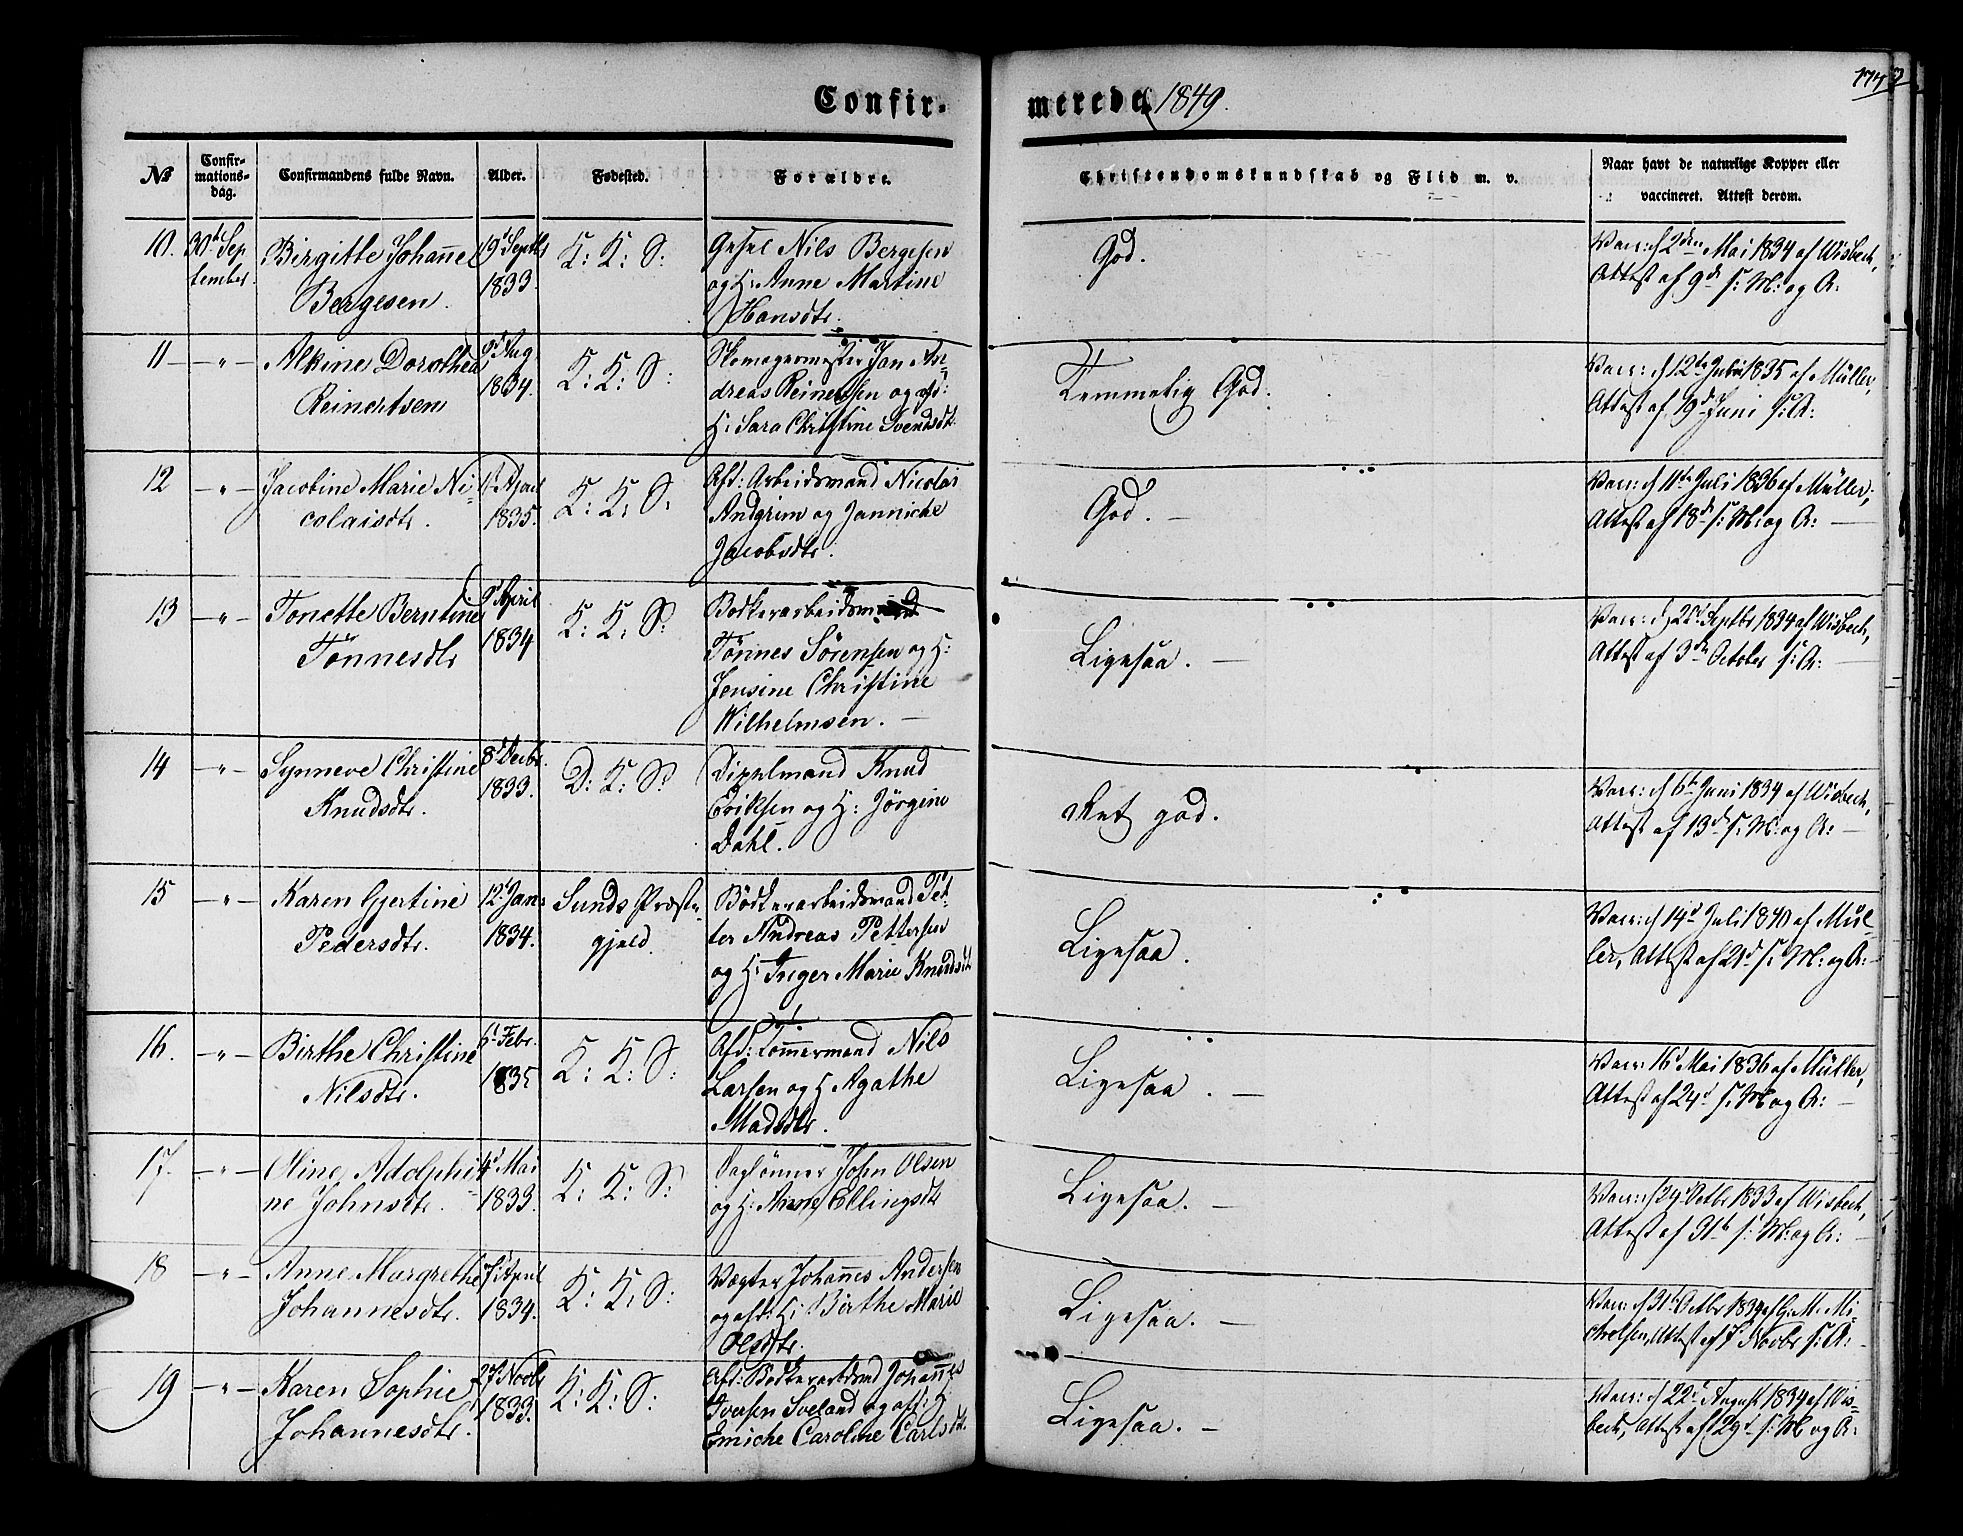 Confir-
merede 1849.
No
Confir-
mations-
dag.
Confirmandens fulde Navn.
Alder.
Fødested.
Forældre.
Christendomskundskab og Flid m. v.
Naar havt de naturlige Kopper eller
vaccineret. Attest derom.
10.
30te Sep
tember
Birgitte Johanne
Bergesen.
19d Septbr
1833
K: K: S:
Nils Bergesen
og H: Anne Martine
Hansdtr.
God.
Vacc: d 2den Mai 1834 af Wisbech,
Attest af 9d s: M: og A:
11 — " —
Alkine Dorothea
Reinertsen
Aug
1834.
K: K: S:
Skomagermester Jan An-
dreas Reinertsen og afd:
H: Sara Christine Svendsdtr.
Temmelig God.
Vacc: d 12te Juni 1835 af Müller,
Attest af 19d Juni s: A:
12 — " —
Jacobine Marie Ni-
colaisdtr.
April
1835.
K: K: S:
Afd: Arbeidsmand Nicolai
Andgrim og Jannicke
Jacobsdtr.
God. —
Vacc: d 11te Juli 1836 af Müller,
Attest af 18d s: M: og A: —
13 — " —
Tonette Berntine
Tønnesdtr
April
1834
K: K: S:
Bødkerarbeidsmand
Tønnes Sørensen og H:
Jensine Christine
Wilhelmsen. —
Ligesaa. —
Vacc: d 22d Septbr 1834 af Wisbech,
Attest af 3die October s: A: —
14 — " —
Synneve Christine
Knudsdtr.
8d Decbr.
1833.
D: K: S:
Knud
Eriksen og H: Jørgine
Dahl.
Ret god.
Vacc: d 6te Juni 1834 af Wisbech,
Attest af 13d s: M: og A: —
15 — " —
Karen Gjertine
Pedersdtr.
12d Jan
1834.
Sunds Præste
gjeld.
Bødkerarbeidsmand Pet-
ter Andreas Pettersen
og H: Inger Marie Knudsdtr
Ligesaa.
Vacc: d 14d Juli 1840 af Mül-
ler, Attest af 21d s: M: og A:
16. — " —
Birthe Christine
Nilsdtr.
Febr.
1835
K: K: S:
Afd: Tømmermand Nils
Larsen og H: Agathe
Madsdtr.
Ligesaa. —
Vacc: 16d Mai 1836 af Müller,
Attest af 24d s: M og A: —
17. — " —
Oline Adolphi-
ne Johnsdtr.
4d Mai
1833.
K: K: S:
Daglønner John Olsen
og H: Anne Ellingsdtr
Ligesaa. —
Vacc: d 24d Octbr 1833 af Wisbech,
Attest af 31te s: M: og A: —
18 — " —
Anne Margrethe
Johannesdtr.
7d April
1834.
K: K: S:
Vægter Johannes Andersen
og afd: H: Birthe Marie
Olsdtr.
Ligesaa. —
Vacc: d 31te Octbr 1834 af G: M. Mi-
chelsen, Attest af 7 Novbr s: A: —
19 — " —
Karen Sophie
Johannesdtr.
27d Novbr
1833.
K: K: S:
Afd: Bødkerarbdsmd Johannes
Iversen Sveland og afd: H
Emiche Caroline Carlsdtr.
Ligesaa. —
Vacc: d 22d August 1834 af Wis-
bech, Attest af 29d s: M og A: